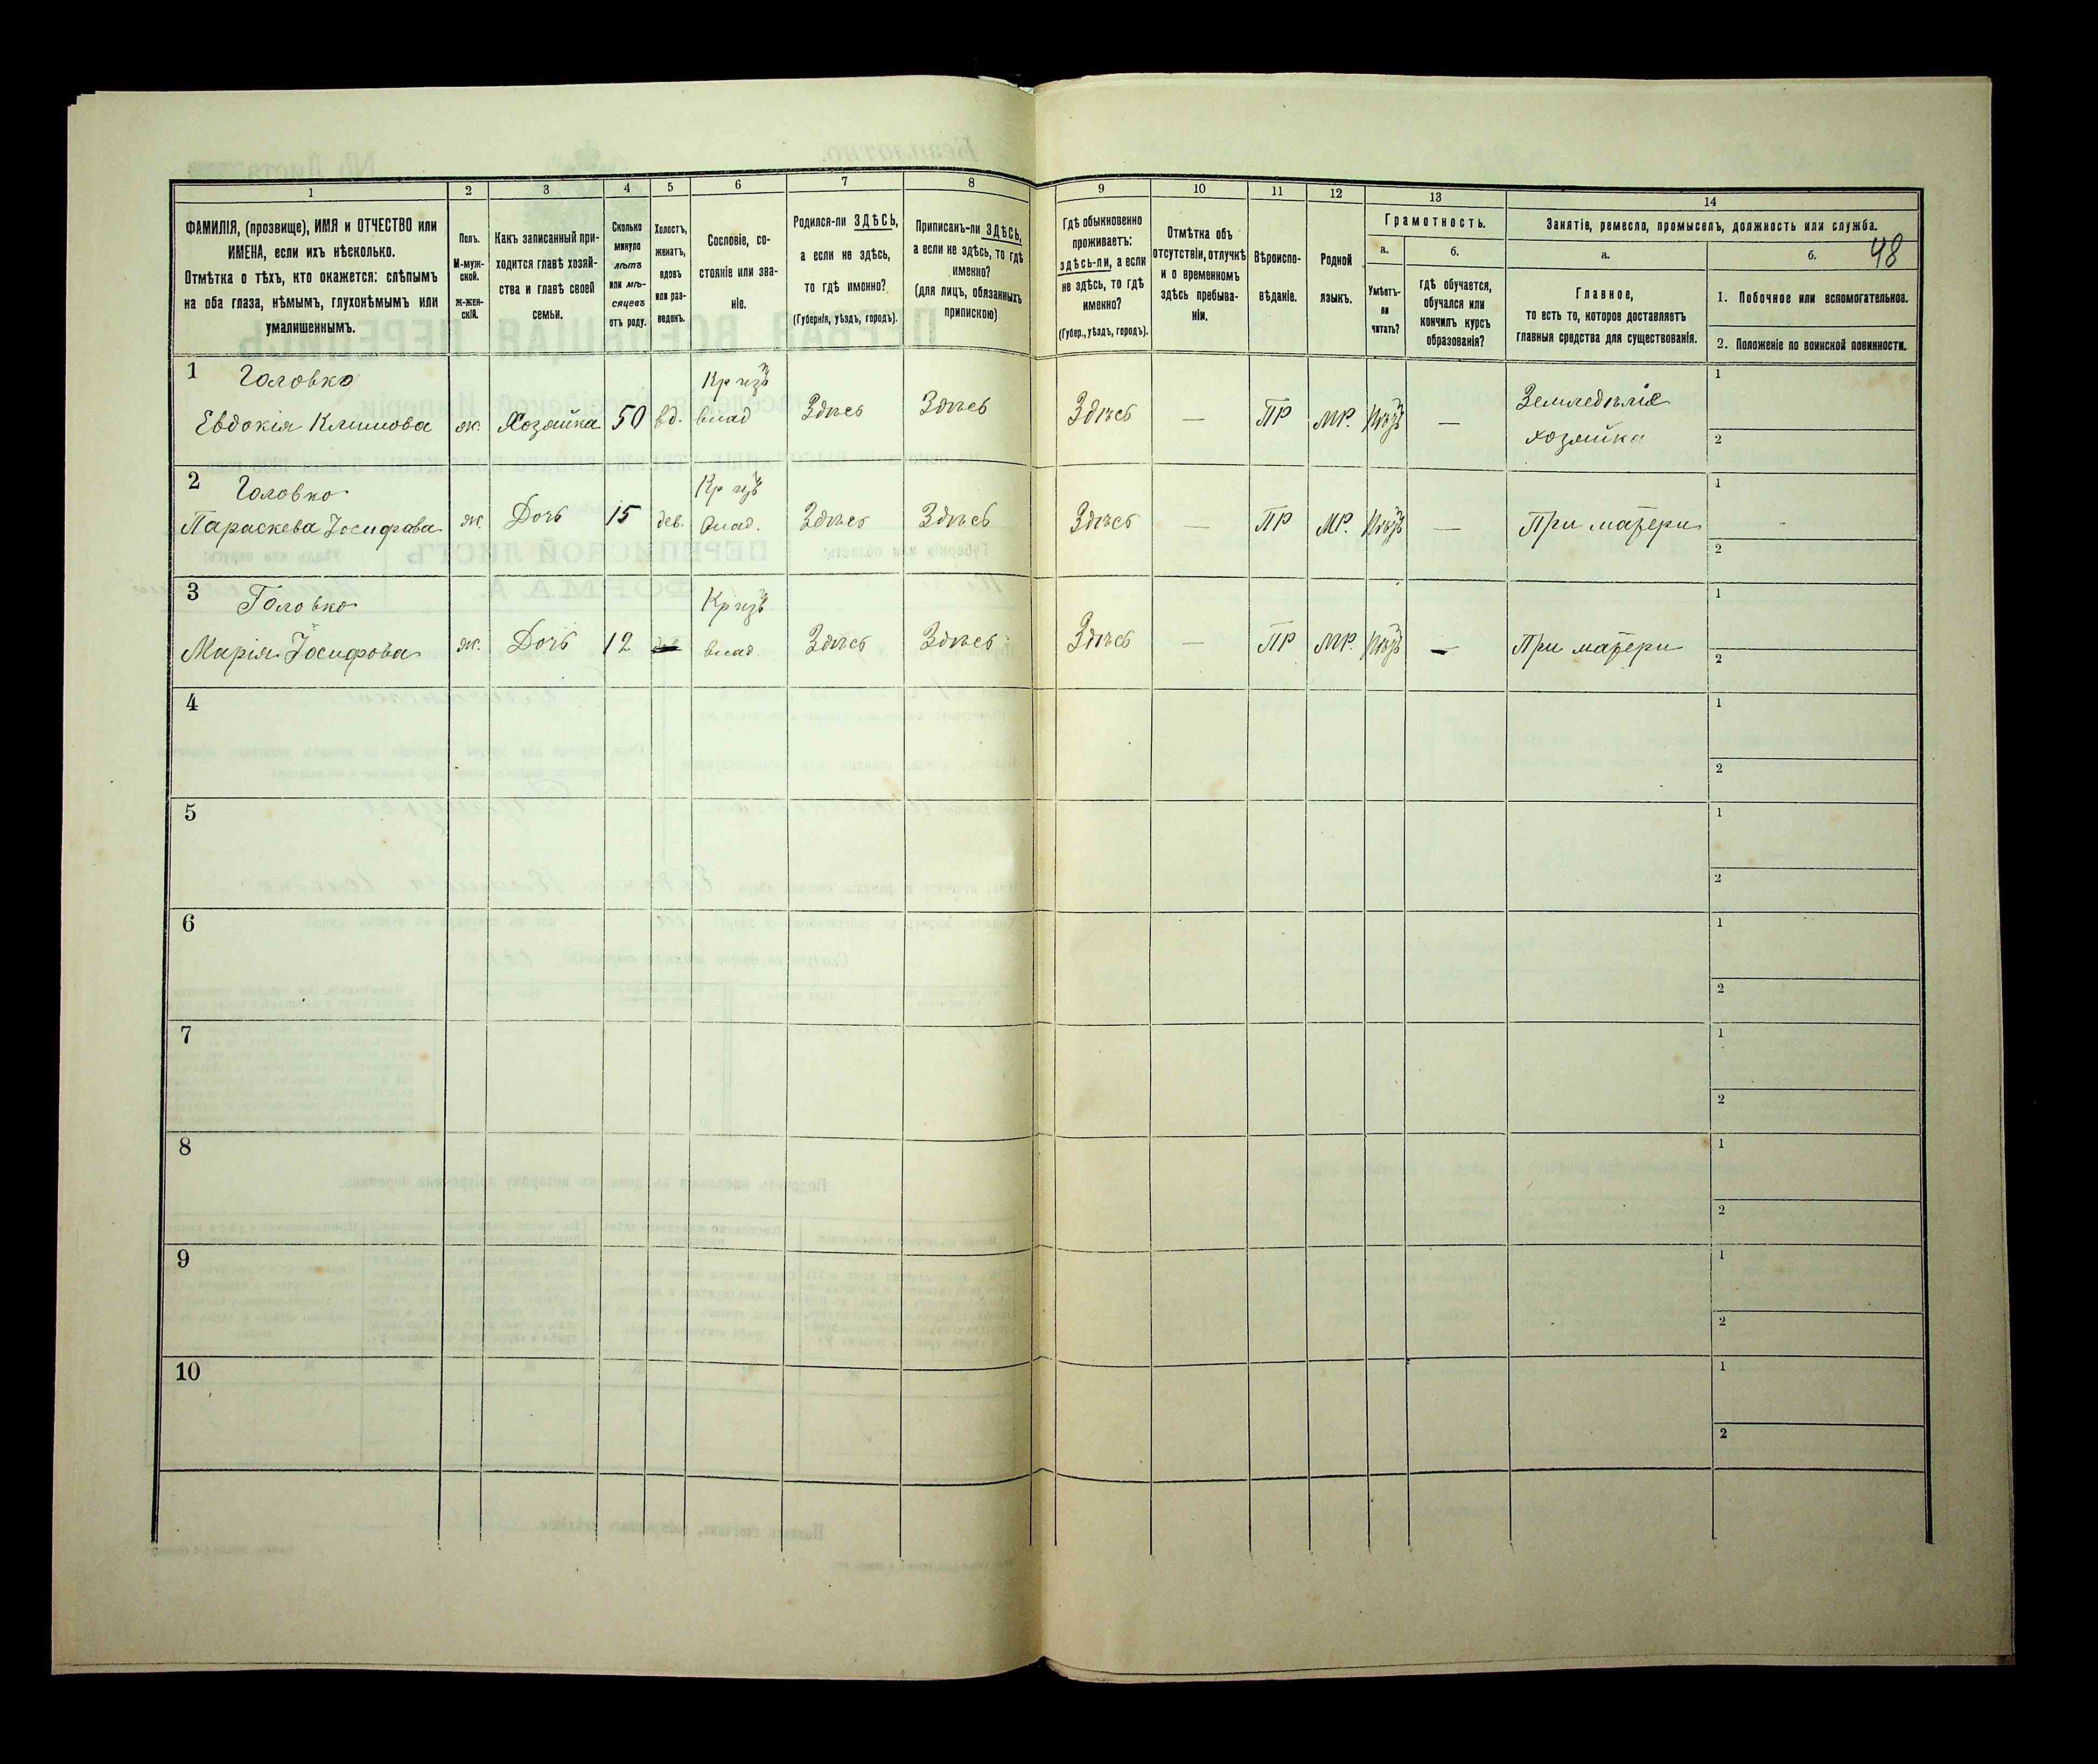 48
1 2 3 4 5 6 7 8 9 10 11 12 13 14
ФАМИЛІЯ, (прозвище), ИМЯ и ОТЧЕСТВО или
ИМЕНА, если ихъ нѣсколько.
Отмѣтка о тѣхъ, кто окажется: слѣпымъ
на оба глаза, нѣмымъ, глухонѣмымъ или
умалишеннымъ.
Полъ.
М-муж-
ской.
Ж-жен-
скій.
Какъ записанный при-
ходится главѣ хозяй-
ства и главѣ своей
семьи.
Сколько
минуло
лѣтъ
или мѣ-
сяцевъ
отъ роду.
Холостъ,
женатъ,
вдовъ
или раз-
веденъ.
Сословіе, со-
стояніе или зва-
ніе.
Родился-ли ЗДѢСЬ,
а если не здѣсь,
то гдѣ именно?
(Губернія, уѣздъ, городъ).
Приписанъ-ли ЗДѢСЬ,
а если не здѣсь, то гдѣ
именно?
(для лицъ, обязанныхъ
припискою)
Гдѣ обыкновенно
проживаетъ:
здѣсь-ли, а если
не здѣсь, то гдѣ
именно?
(Губер., уѣздъ, городъ).
Отмѣтка объ
отсутствіи, отлучкѣ
и о временномъ
здѣсь пребыва-
ніи.
Вѣроиспо-
вѣданіе.
Родной
языкъ.
Грамотность.
а.
Умѣетъ-
ли
читать?
б.
гдѣ обучается,
обучался или
кончилъ курсъ
образованія?
Занятіе, ремесло, промыселъ, должность или служба.
а.
Главное,
то есть то, которое доставляетъ
главныя средства для существованія.
б.
1. Побочное или вспомогательное.
2. Положеніе по воинской повинности.
1 Головко Кр изъ 1
Евдокія Климова ж. Хозяйка 50 вд. влад Здѣсь Здѣсь Здѣсь — ПР МР. — Земледѣліе
хозяйка 2
2 Головко Кр изъ 1
Параскева Іосифова ж. Дочь 15 дев. влад. Здѣсь Здѣсь Здѣсь — ПР МР. — При матери
2
3 Головко Кр изъ 1
Марія Іосифова ж. Дочь 12 влад. Здѣсь Здѣсь Здѣсь — ПР МР. — При матери
2
4 1
2
5 1
2
6 1
2
7 1
2
8 1
2
9 1
2
10 1
2